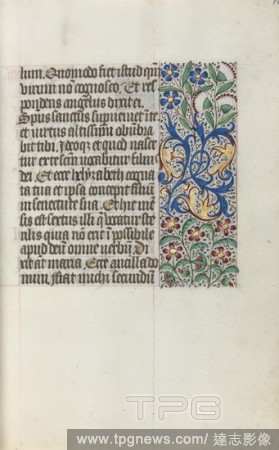 lum. Quomodo fiet istud qm
virum nō cognosco. Et res
pondens angelus dixit ei.
Spus sanctus superueniet i te
et virtus altissimi obūbra
bit tibi. Ideoq; et quod nasce
tur ex te sanctum vocabitur filius
dei. Et ecce helyzabeth cogna
ta tua et ipsa concepit filiū
in senectute sua. Et hic mē
sis est sextus illi q̄ vocatur ste
rilis quia nō erit ī possibile
apud deū omne verbū. Di
xit at maria. Ecce ancilla do
mini fiat michi secundū
TPG
www.tpgnews.com/達志影像